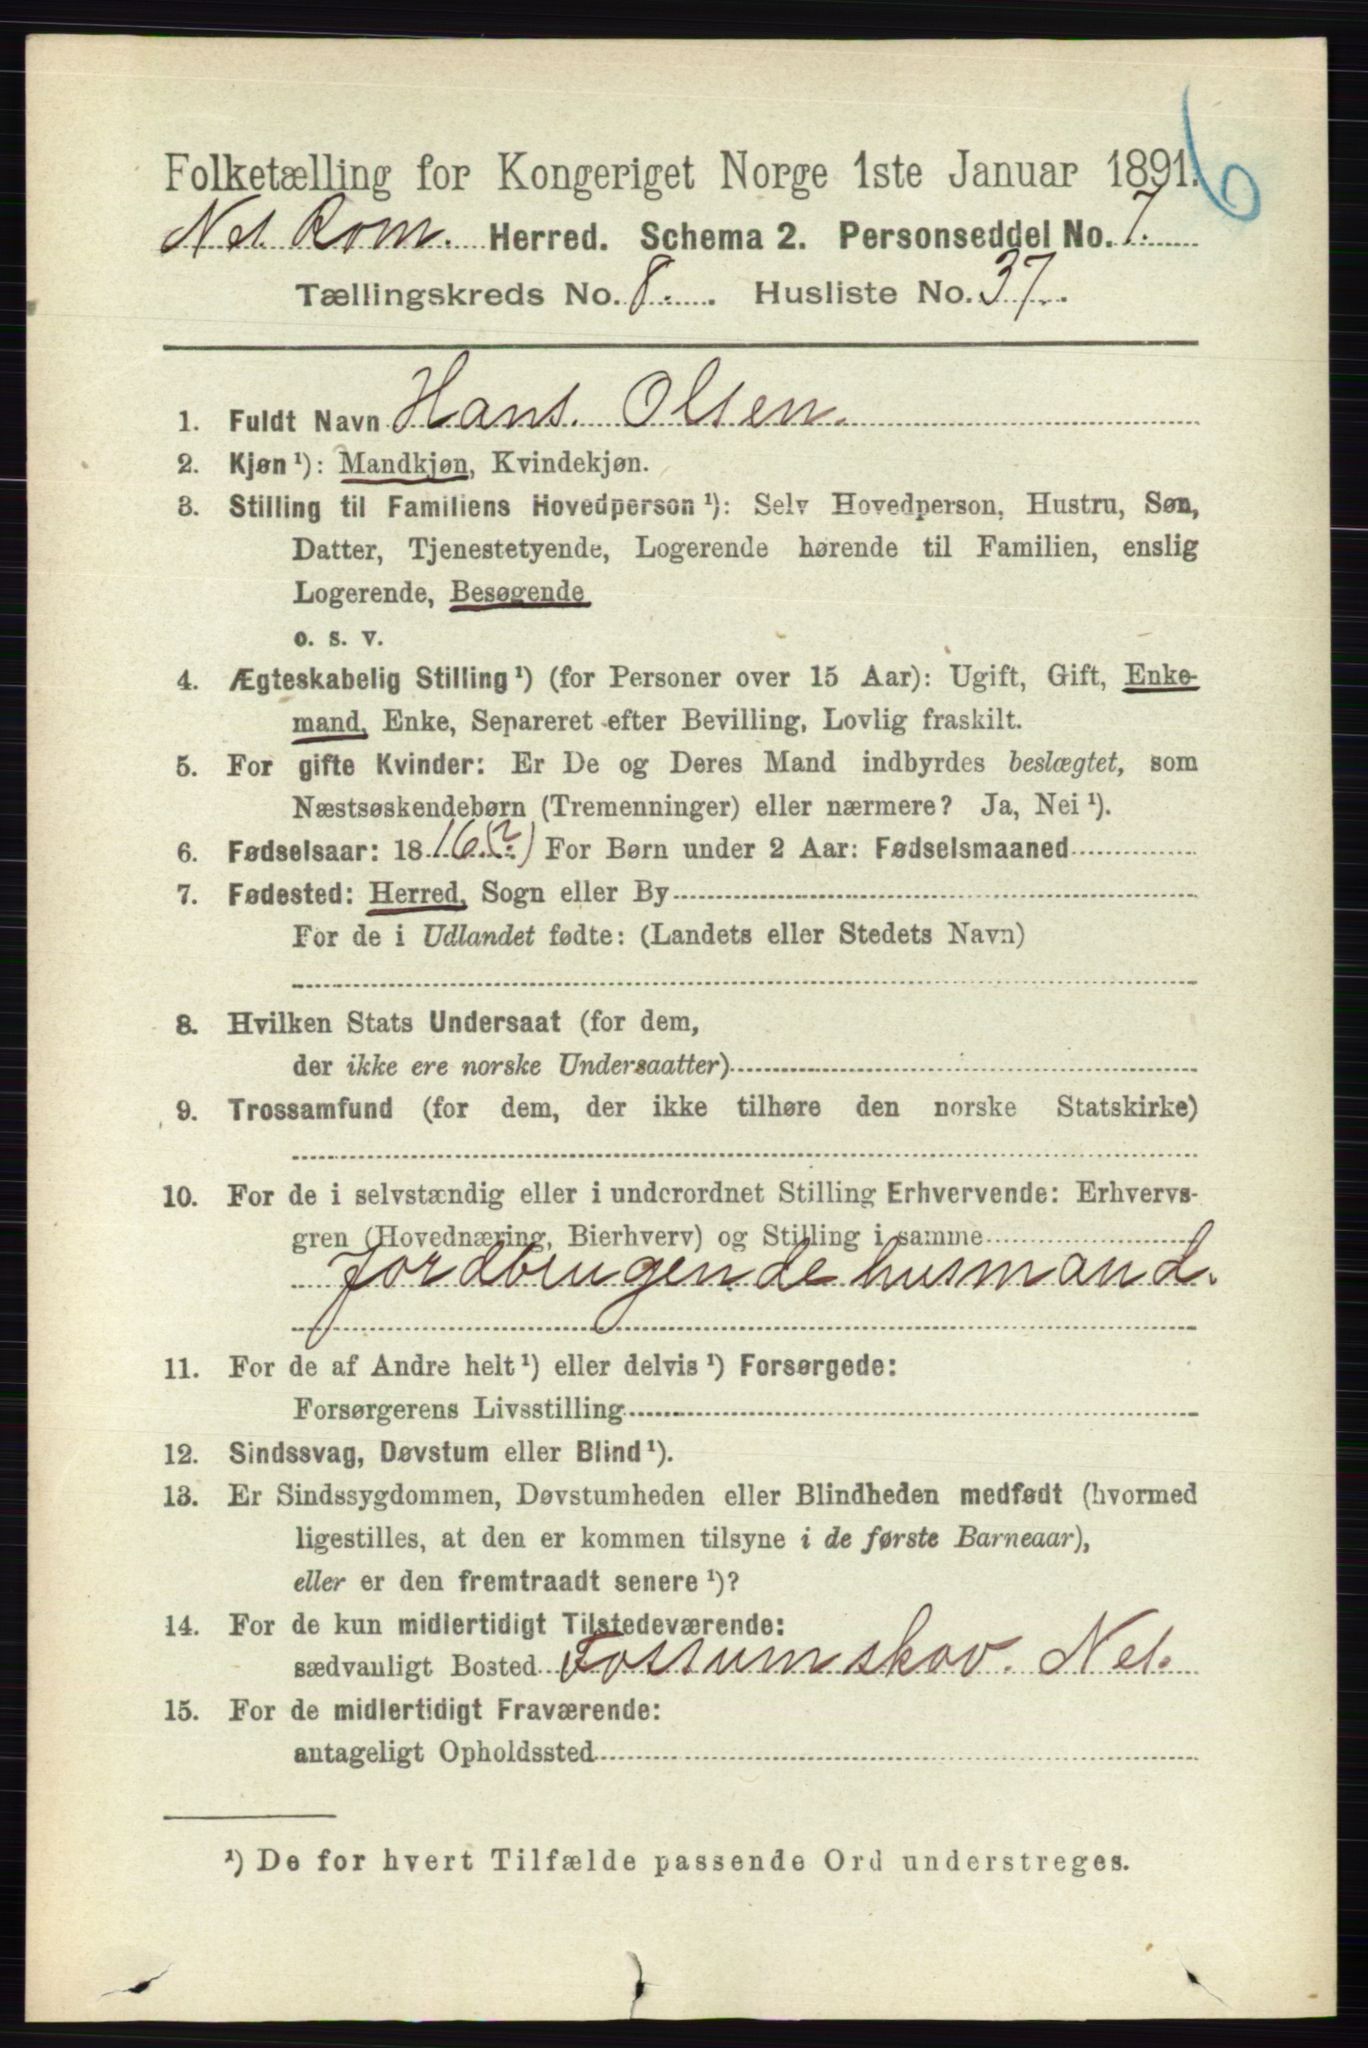 6
Folketælling for Kongeriget Norge 1ste Januar 1891.
Nes. Rom. Herred. Schema 2. Personseddel No. 7.
Tællingskreds No. 8. Husliste No. 37.
1. Fuldt Navn Hans. Olsen.
2. Kjøn ¹): Mandkjøn, Kvindekjøn.
3. Stilling til Familiens Hovedperson ¹): Selv Hovedperson, Hustru, Søn,
Datter, Tjenestetyende, Logerende hørende til Familien, enslig
Logerende, Besøgende
o. s. v.
4. Ægteskabelig Stilling ¹) (for Personer over 15 Aar): Ugift, Gift, Enke-
mand, Enke, Separeret efter Bevilling, Lovlig fraskilt.
5. For gifte Kvinder: Er De og Deres Mand indbyrdes beslægtet, som
Næstsøskendebørn (Tremenninger) eller nærmere? Ja, Nei ¹).
6. Fødselsaar: 1816(?) For Børn under 2 Aar: Fødselsmaaned
7. Fødested: Herred, Sogn eller By
For de i Udlandet fødte: (Landets eller Stedets Navn)
8. Hvilken Stats Undersaat (for dem,
der ikke ere norske Undersaatter)
9. Trossamfund (for dem, der ikke tilhøre den norske Statskirke)
10. For de i selvstændig eller i underordnet Stilling Erhvervende: Erhvervs-
gren (Hovednæring, Bierhverv) og Stilling i samme
jordbrugende husmand.
11. For de af Andre helt ¹) eller delvis ¹) Forsørgede:
Forsørgerens Livsstilling
12. Sindssvag, Døvstum eller Blind ¹).
13. Er Sindssygdommen, Døvstumheden eller Blindheden medfødt (hvormed
ligestilles, at den er kommen tilsyne i de første Barneaar),
eller er den fremtraadt senere ¹)?
14. For de kun midlertidigt Tilstedeværende:
sædvanligt Bosted Fossumskov. Nes.
15. For de midlertidigt Fraværende:
antageligt Opholdssted
¹) De for hvert Tilfælde passende Ord understreges.